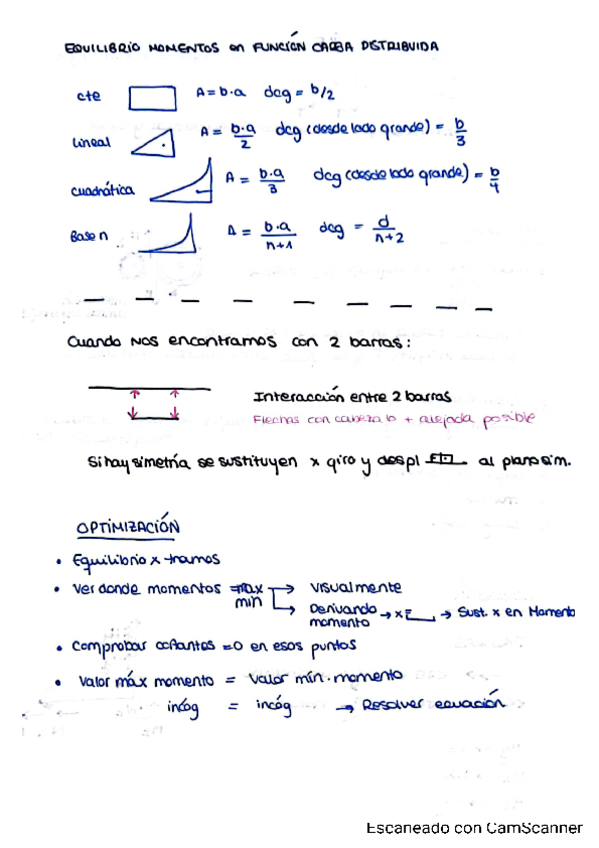 EQUILIBRIO MOMENTOS en FUNCIÓN CARGA DISTRIBUIDA
cte A = b·a dcg = b/2
Lineal A = b·a/2 dcg (desde lado grande) = b/3
cuadrática A = b·a/3 dcg (desde lado grande) = b/4
Base n A = b·a/n+1 dcg = d/n+2
Cuando nos encontramos con 2 barras:
Interacción entre 2 barras
Flechas con cabeza lo + alejada posible
Si hay simetría se sustituyen x giro y despl al plano sim.
OPTIMIZACIÓN
• Equilibrio x tramos
• Ver donde momentos = max → visualmente
min → Derivando → x → Sust. x en Momento
momento
• Comprobar cortantes = 0 en esos puntos
• Valor máx momento = valor mín. momento
incóg = incóg → Resolver ecuación
Escaneado con CamScanner